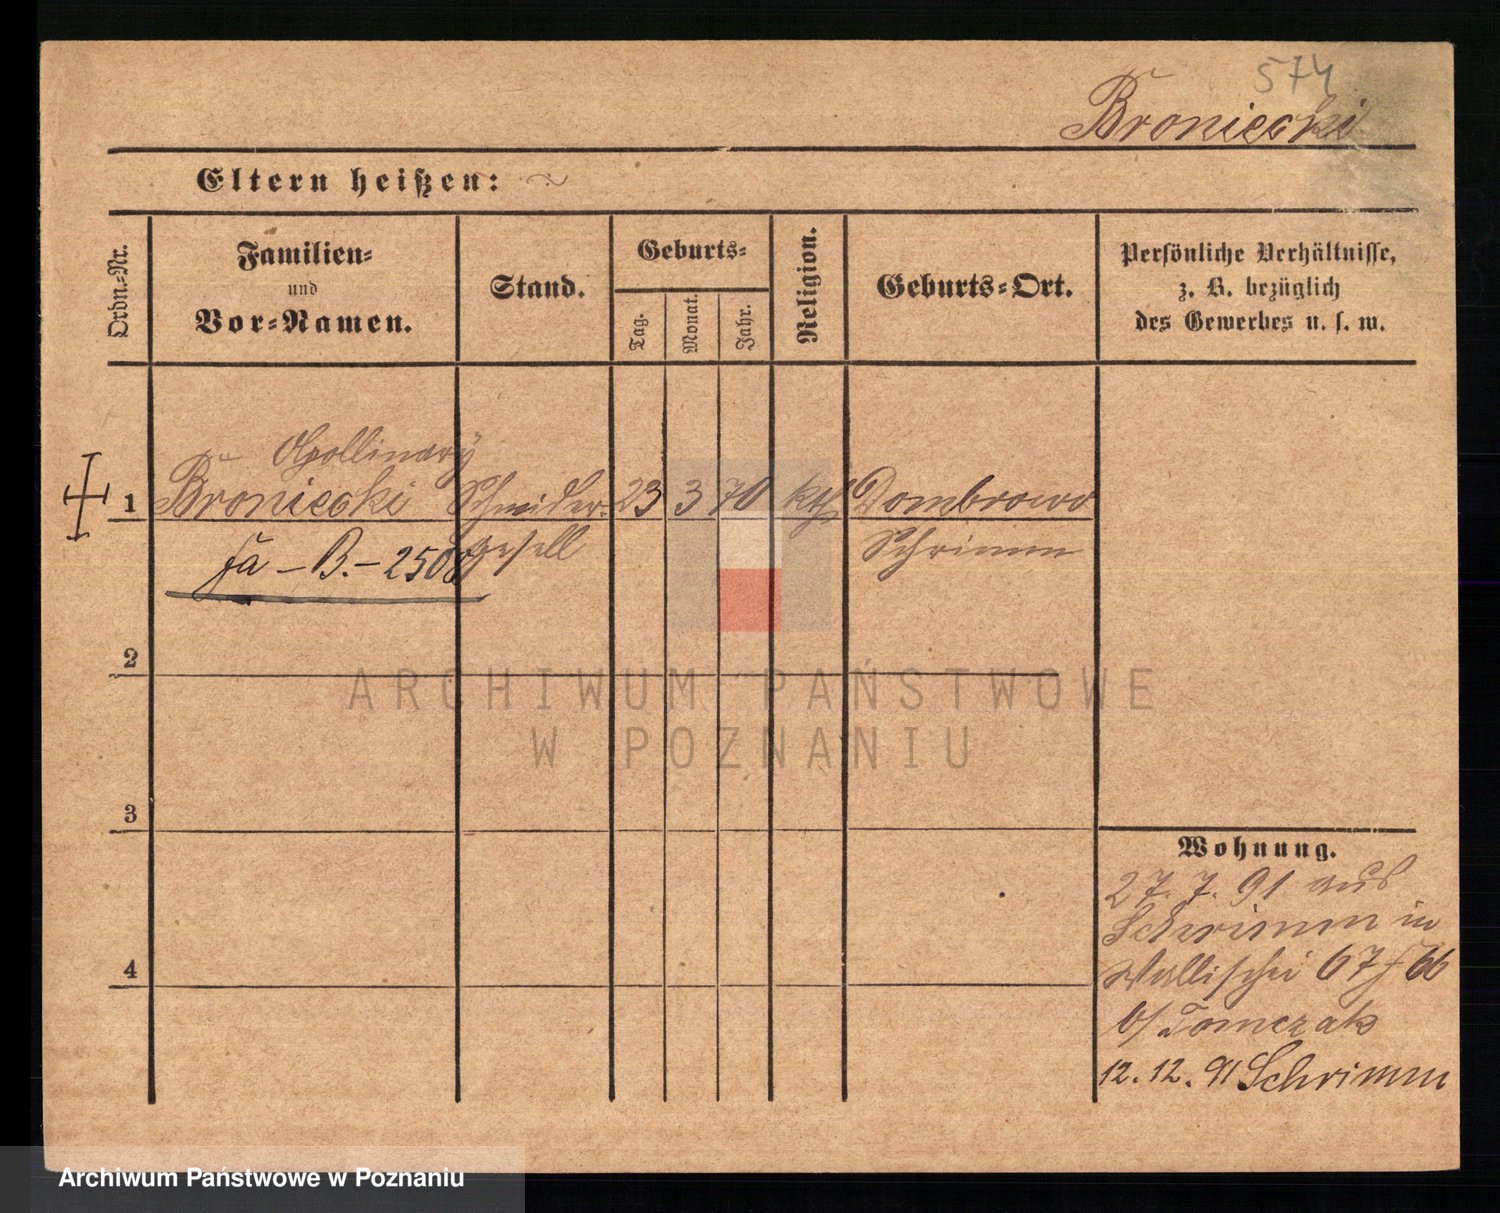 574
Broniecki
Eltern heißen:
Ordn.-Nr.
Familien-
und
Vor-Namen.
Stand.
Geburts-
Tag.
Monat.
Jahr.
Religion.
Geburts-Ort.
Persönliche Verhältnisse,
z. B. bezüglich
des Gewerbes u. s. w.
Apollinary
1 Broniecki Schneider- 23 3 70 kth Dombrowo
gesell Schrimm
fa - B. - 2508
2
ARCHIWUM PAŃSTWOWE
W POZNANIU
3
Wohnung.
27. 7. 91 aus
Schrimm in
Wallischei 67/66
b/ Tomczak
4
12. 12. 91 Schrimm
Archiwum Państwowe w Poznaniu